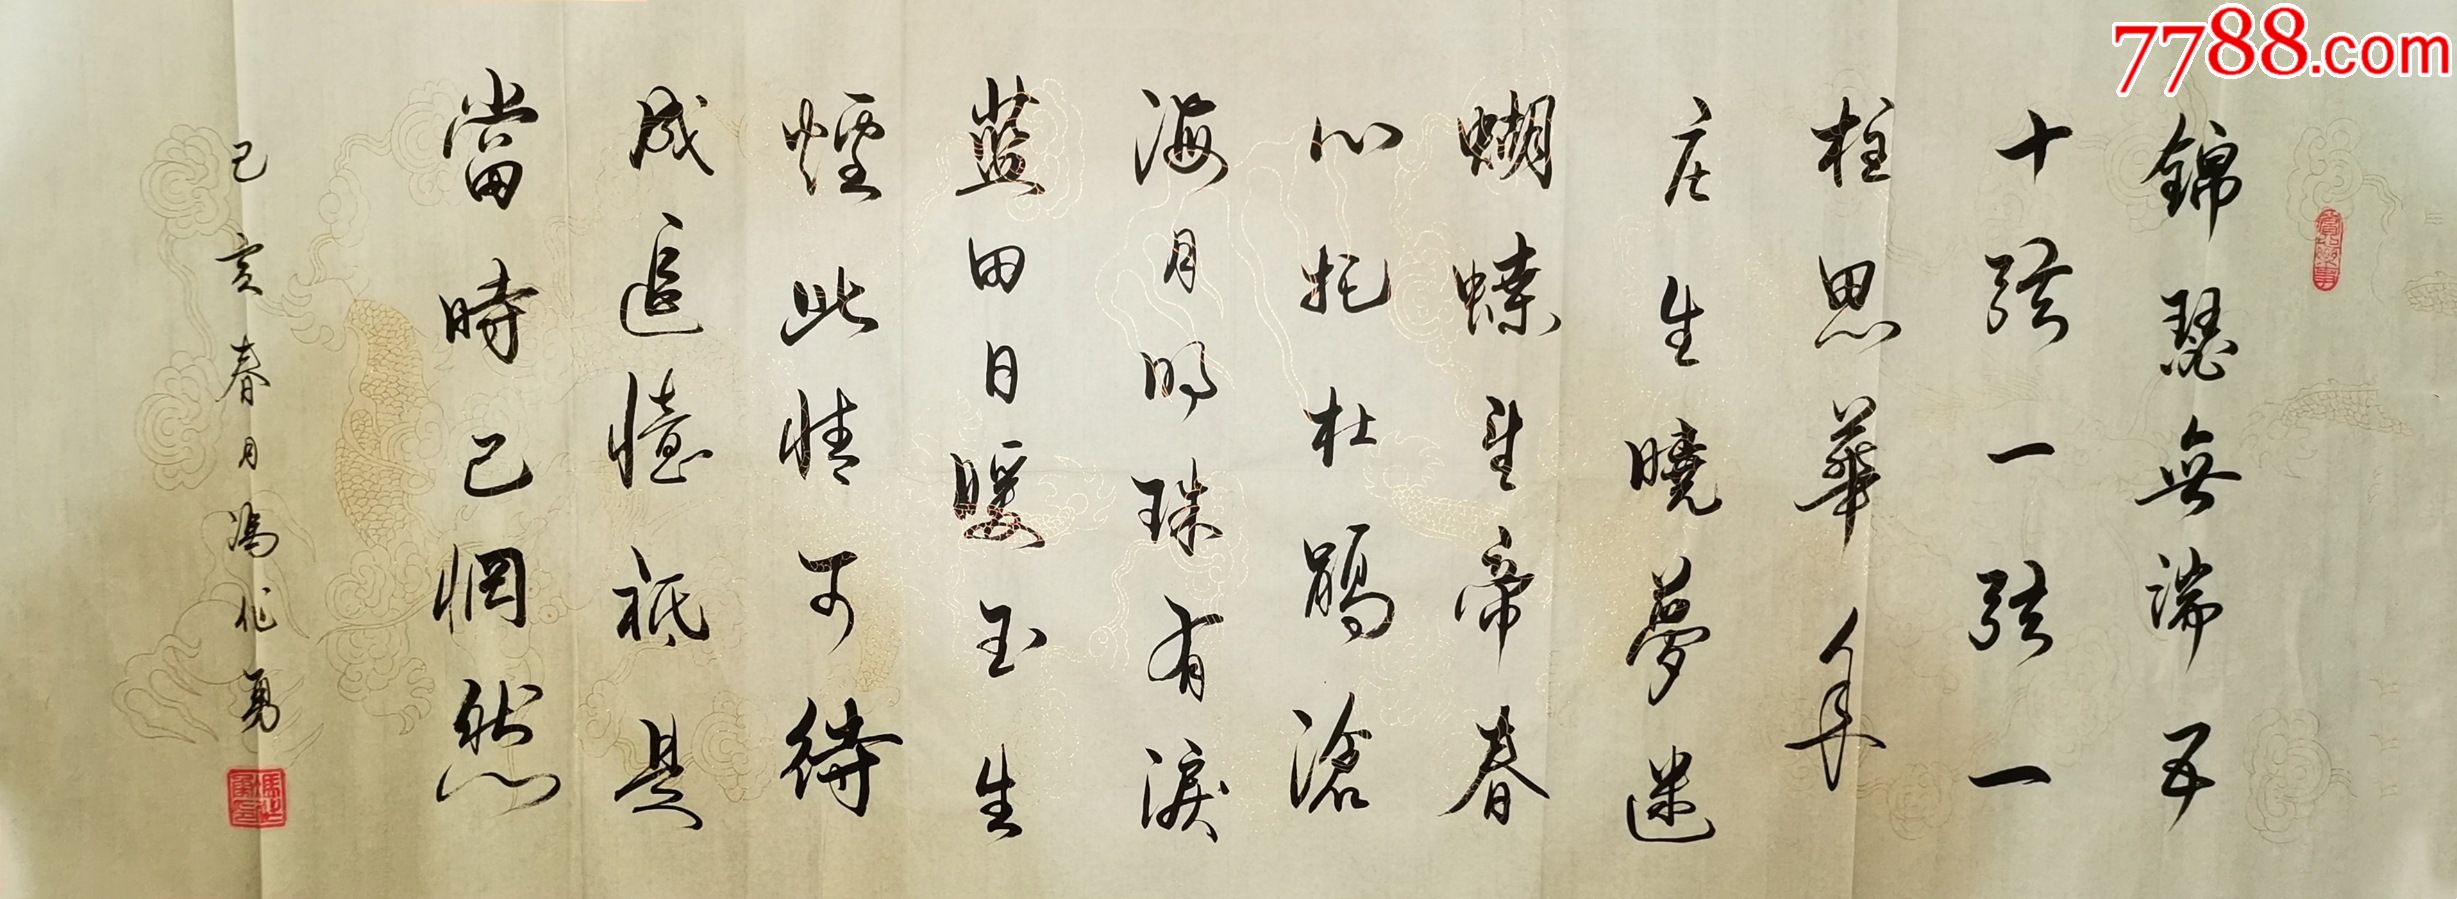 7788.com
錦瑟無端五
十弦一弦一
柱思華年
庄生曉夢迷
蝴蝶望帝春
心托杜鵑滄
海月明珠有淚
藍田日暖玉生
煙此情可待
成追憶祗是
當時已惘然
己亥春月馮作勇